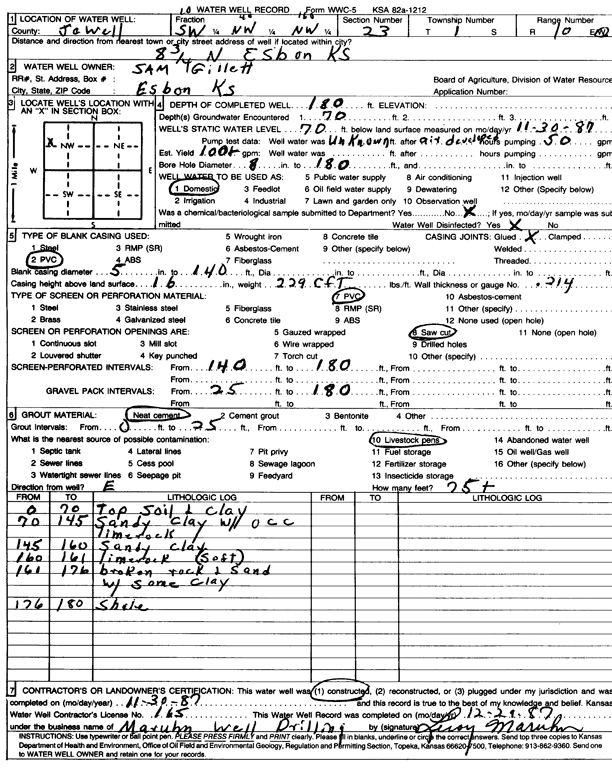 WATER WELL RECORD Form WWC-5 KSA 82a-1212
1 LOCATION OF WATER WELL: Fraction Section Number Township Number Range Number
County: Jewell SW ¼ NW ¼ NW ¼ 23 T 1 S R 10 E/W
Distance and direction from nearest town or city street address of well if located within city?
8 3/4 N Esbon KS
2 WATER WELL OWNER: SAM Gillett
RR#, St. Address, Box # : Board of Agriculture, Division of Water Resource
City, State, ZIP Code : Esbon Ks Application Number:
3 LOCATE WELL'S LOCATION WITH AN "X" IN SECTION BOX:
N
X NW NE
W E
SW SE
S
1 Mile
4 DEPTH OF COMPLETED WELL 180 ft. ELEVATION:
Depth(s) Groundwater Encountered 1. 70 ft. 2. ft. 3. ft.
WELL'S STATIC WATER LEVEL 70 ft. below land surface measured on mo/day/yr 11-30-87
Pump test data: Well water was UnKnown ft. after air developed hours pumping 50 gpm
Est. Yield 100+ gpm: Well water was ft. after hours pumping gpm
Bore Hole Diameter 8 in. to 180 ft., and in. to ft.
WELL WATER TO BE USED AS: 5 Public water supply 8 Air conditioning 11 Injection well
1 Domestic 3 Feedlot 6 Oil field water supply 9 Dewatering 12 Other (Specify below)
2 Irrigation 4 Industrial 7 Lawn and garden only 10 Observation well
Was a chemical/bacteriological sample submitted to Department? Yes No X ; If yes, mo/day/yr sample was sub
mitted Water Well Disinfected? Yes X No
5 TYPE OF BLANK CASING USED: 5 Wrought iron 8 Concrete tile CASING JOINTS: Glued X Clamped
1 Steel 3 RMP (SR) 6 Asbestos-Cement 9 Other (specify below) Welded
2 PVC 4 ABS 7 Fiberglass Threaded.
Blank casing diameter 5 in. to 140 ft., Dia in. to ft., Dia in. to ft.
Casing height above land surface 16 in., weight 229 CFT lbs./ft. Wall thickness or gauge No. .214
TYPE OF SCREEN OR PERFORATION MATERIAL: 7 PVC 10 Asbestos-cement
1 Steel 3 Stainless steel 5 Fiberglass 8 RMP (SR) 11 Other (specify)
2 Brass 4 Galvanized steel 6 Concrete tile 9 ABS 12 None used (open hole)
SCREEN OR PERFORATION OPENINGS ARE: 5 Gauzed wrapped 8 Saw cut 11 None (open hole)
1 Continuous slot 3 Mill slot 6 Wire wrapped 9 Drilled holes
2 Louvered shutter 4 Key punched 7 Torch cut 10 Other (specify)
SCREEN-PERFORATED INTERVALS: From 140 ft. to 180 ft., From ft. to ft.
From ft. to ft., From ft. to ft.
GRAVEL PACK INTERVALS: From 25 ft. to 180 ft., From ft. to ft.
From ft. to ft., From ft. to ft.
6 GROUT MATERIAL: Neat cement 2 Cement grout 3 Bentonite 4 Other
Grout Intervals: From 0 ft. to 25 ft., From ft. to ft., From ft. to ft.
What is the nearest source of possible contamination: 10 Livestock pens 14 Abandoned water well
1 Septic tank 4 Lateral lines 7 Pit privy 11 Fuel storage 15 Oil well/Gas well
2 Sewer lines 5 Cess pool 8 Sewage lagoon 12 Fertilizer storage 16 Other (specify below)
3 Watertight sewer lines 6 Seepage pit 9 Feedyard 13 Insecticide storage
Direction from well? E How many feet? 75+
FROM TO LITHOLOGIC LOG FROM TO LITHOLOGIC LOG
0 70 Top Soil & clay
70 145 Sandy Clay w/ occ
limerock
145 160 Sandy clay
160 161 limerock (Soft)
161 176 broken rock & Sand
w/ some clay
176 180 Shale
7 CONTRACTOR'S OR LANDOWNER'S CERTIFICATION: This water well was (1) constructed, (2) reconstructed, or (3) plugged under my jurisdiction and was
completed on (mo/day/year) 11-30-87 and this record is true to the best of my knowledge and belief. Kansas
Water Well Contractor's License No. 165 This Water Well Record was completed on (mo/day/yr) 12-29-87
under the business name of Maruhn Well Drilling by (signature) Maruhn
INSTRUCTIONS: Use typewriter or ball point pen. PLEASE PRESS FIRMLY and PRINT clearly. Please fill in blanks, underline or circle the correct answers. Send top three copies to Kansas
Department of Health and Environment, Office of Oil Field and Environmental Geology, Regulation and Permitting Section, Topeka, Kansas 66620-7500, Telephone: 913-862-9360. Send one
to WATER WELL OWNER and retain one for your records.